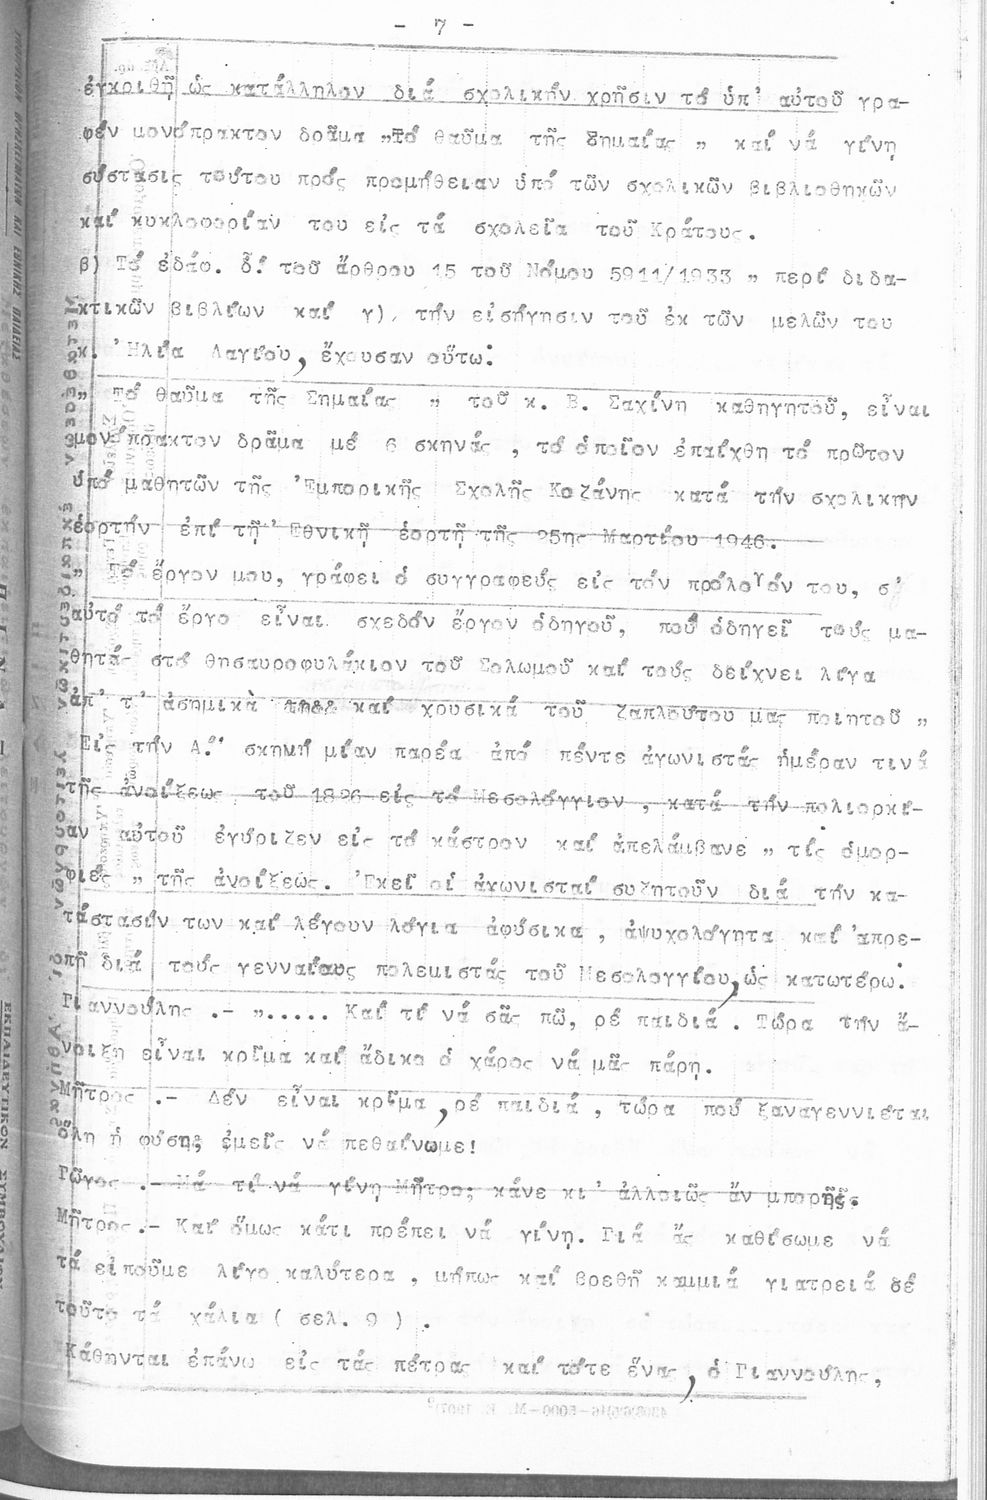 - 7 -
ἐγκριθῇ ὡς κατάλληλον διά σχολικήν χρῆσιν τό ὑπ' αὐτοῦ γρα-
φέν μονόπρακτον δρᾶμα „Τό θαῦμα τῆς Σημαίας „ καί νά γίνῃ
σύστασις τούτου πρός προμήθειαν ὑπό τῶν σχολικῶν βιβλιοθηκῶν
καί κυκλοφορίαν του εἰς τά σχολεῖα τοῦ Κράτους.
β) Τό ἐδάφ. δ΄. τοῦ ἄρθρου 15 τοῦ Νόμου 5911/1933 „ περί διδα-
κτικῶν βιβλίων καί γ), τήν εἰσήγησιν τοῦ ἐκ τῶν μελῶν του
κ. Ἠλία Λαγίου, ἔχουσαν οὕτω:
„ Τό θαῦμα τῆς Σημαίας „ τοῦ κ. Β. Σαχίνη καθηγητοῦ, εἶναι
μονόπρακτον δρᾶμα μέ 6 σκηνάς , τό ὁποῖον ἐπαίχθη τό πρῶτον
ὑπό μαθητῶν τῆς Ἐμπορικῆς Σχολῆς Κοζάνης κατά τήν σχολικήν
ἑορτήν ἐπί τῇ Ἐθνικῇ ἑορτῇ τῆς 25ης Μαρτίου 1946.
„ Τό ἔργον μου, γράφει ὁ συγγραφεύς εἰς τόν πρόλογόν του, σ'
αὐτό τό ἔργο εἶναι σχεδόν ἔργον ὁδηγοῦ, πού ὁδηγεῖ τούς μα-
θητάς στό θησαυροφυλάκιον τοῦ Σολωμοῦ καί τούς δείχνει λίγα
ἀπ' τ' ἀσημικὰ καί χρυσικά τοῦ ζαπλούτου μας ποιητοῦ „
Εἰς τήν Α.' σκηνή μίαν παρέα ἀπό πέντε ἀγωνιστάς ἡμέραν τινά
τῆς ἀνοίξεως τοῦ 1826 εἰς τό Μεσολόγγιον , κατά τήν πολιορκί-
αν αὐτοῦ ἐγύριζεν εἰς τό κάστρον καί ἀπελάμβανε „ τίς ὀμορ-
φιές „ τῆς ἀνοίξεως. Ἐκεῖ οἱ ἀγωνισταί συζητοῦν διά τήν κα-
τάστασίν των καί λέγουν λόγια ἀφύσικα , ἀψυχολόγητα καί ἀπρε-
πῆ διά τούς γενναίους πολεμιστάς τοῦ Μεσολογγίου, ὡς κατωτέρω:
Γιαννούλης .- „..... Καί τί νά σᾶς πῶ, ρέ παιδιά . Τώρα τήν ἄ-
νοιξη εἶναι κρῖμα καί ἄδικο ὁ χάρος νά μᾶς πάρῃ.
Μῆτρος .- Δέν εἶναι κρῖμα, ρέ παιδιά , τώρα πού ξαναγεννιέται
ὅλη ἡ φύση, ἐμεῖς νά πεθαίνωμε!
Γῶγος .- Μά τί νά γίνῃ Μῆτρο; κάνε κι' ἀλλοιῶς ἄν μπορῇς.
Μῆτρος .- Καί ὅμως κάτι πρέπει νά γίνῃ. Γιά ἄς καθίσωμε νά
τά εἰποῦμε λίγο καλύτερα , μήπως καί βρεθῇ καμμιά γιατρειά σέ
τοῦτο τά χάλια ( σελ. 9 ) .
Κάθηνται ἐπάνω εἰς τάς πέτρας καί τότε ἕνας, ὁ Γιαννούλης,